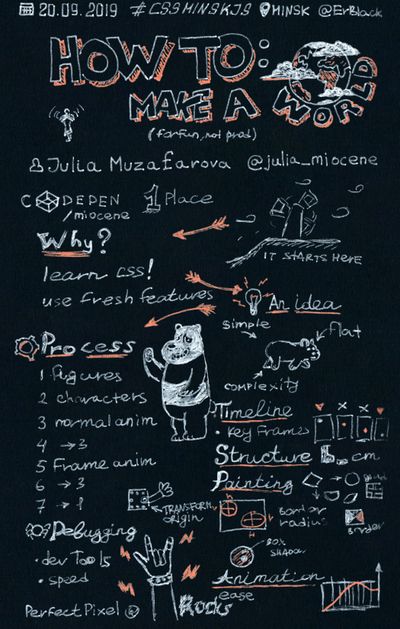 20.09.2019 #CSSMINSKJS MINSK @ErBlack
HOW TO:
MAKE A WORLD
(for fun, not prod)
Julia Muzafarova @julia_miocene
CODEPEN
/miocene
1 Place
Why?
IT STARTS HERE
learn CSS!
use fresh features
An idea
simple
flat
complexity
Process
1 figures
2 characters
3 normal anim
4 → 3
5 Frame anim
6 → 3
7 → 1
Timeline
• key frames
Structure
Painting
TRANSFORM
ORIGIN
border
radius
border
80%
SHADOW
Debugging
• dev Tools
• speed
Animation
ease
PerfectPixel
Rocks